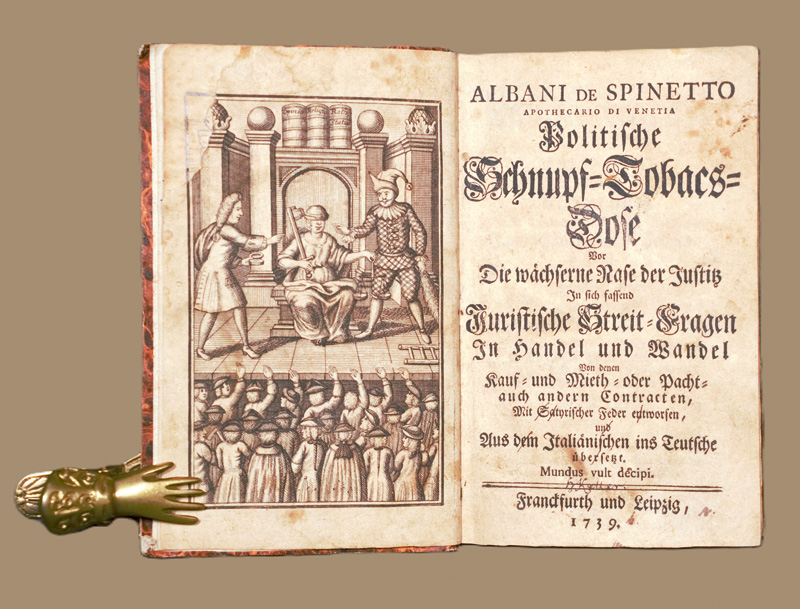 ALBANI DE SPINETTO
APOTHECARIO DI VENETIA
Politische
Schnupf-Tobacs-
Dose
Vor
Die wächserne Nase der Justitz
In sich fassend
Juristische Streit-Fragen
In Handel und Wandel
Von denen
Kauf- und Mieth- oder Pacht-
auch andern Contracten,
Mit Satyrischer Feder entworfen,
und
Aus dem Italiänischen ins Teutsche
übersetzt.
Mundus vult decipi.
Franckfurth und Leipzig,
1739.